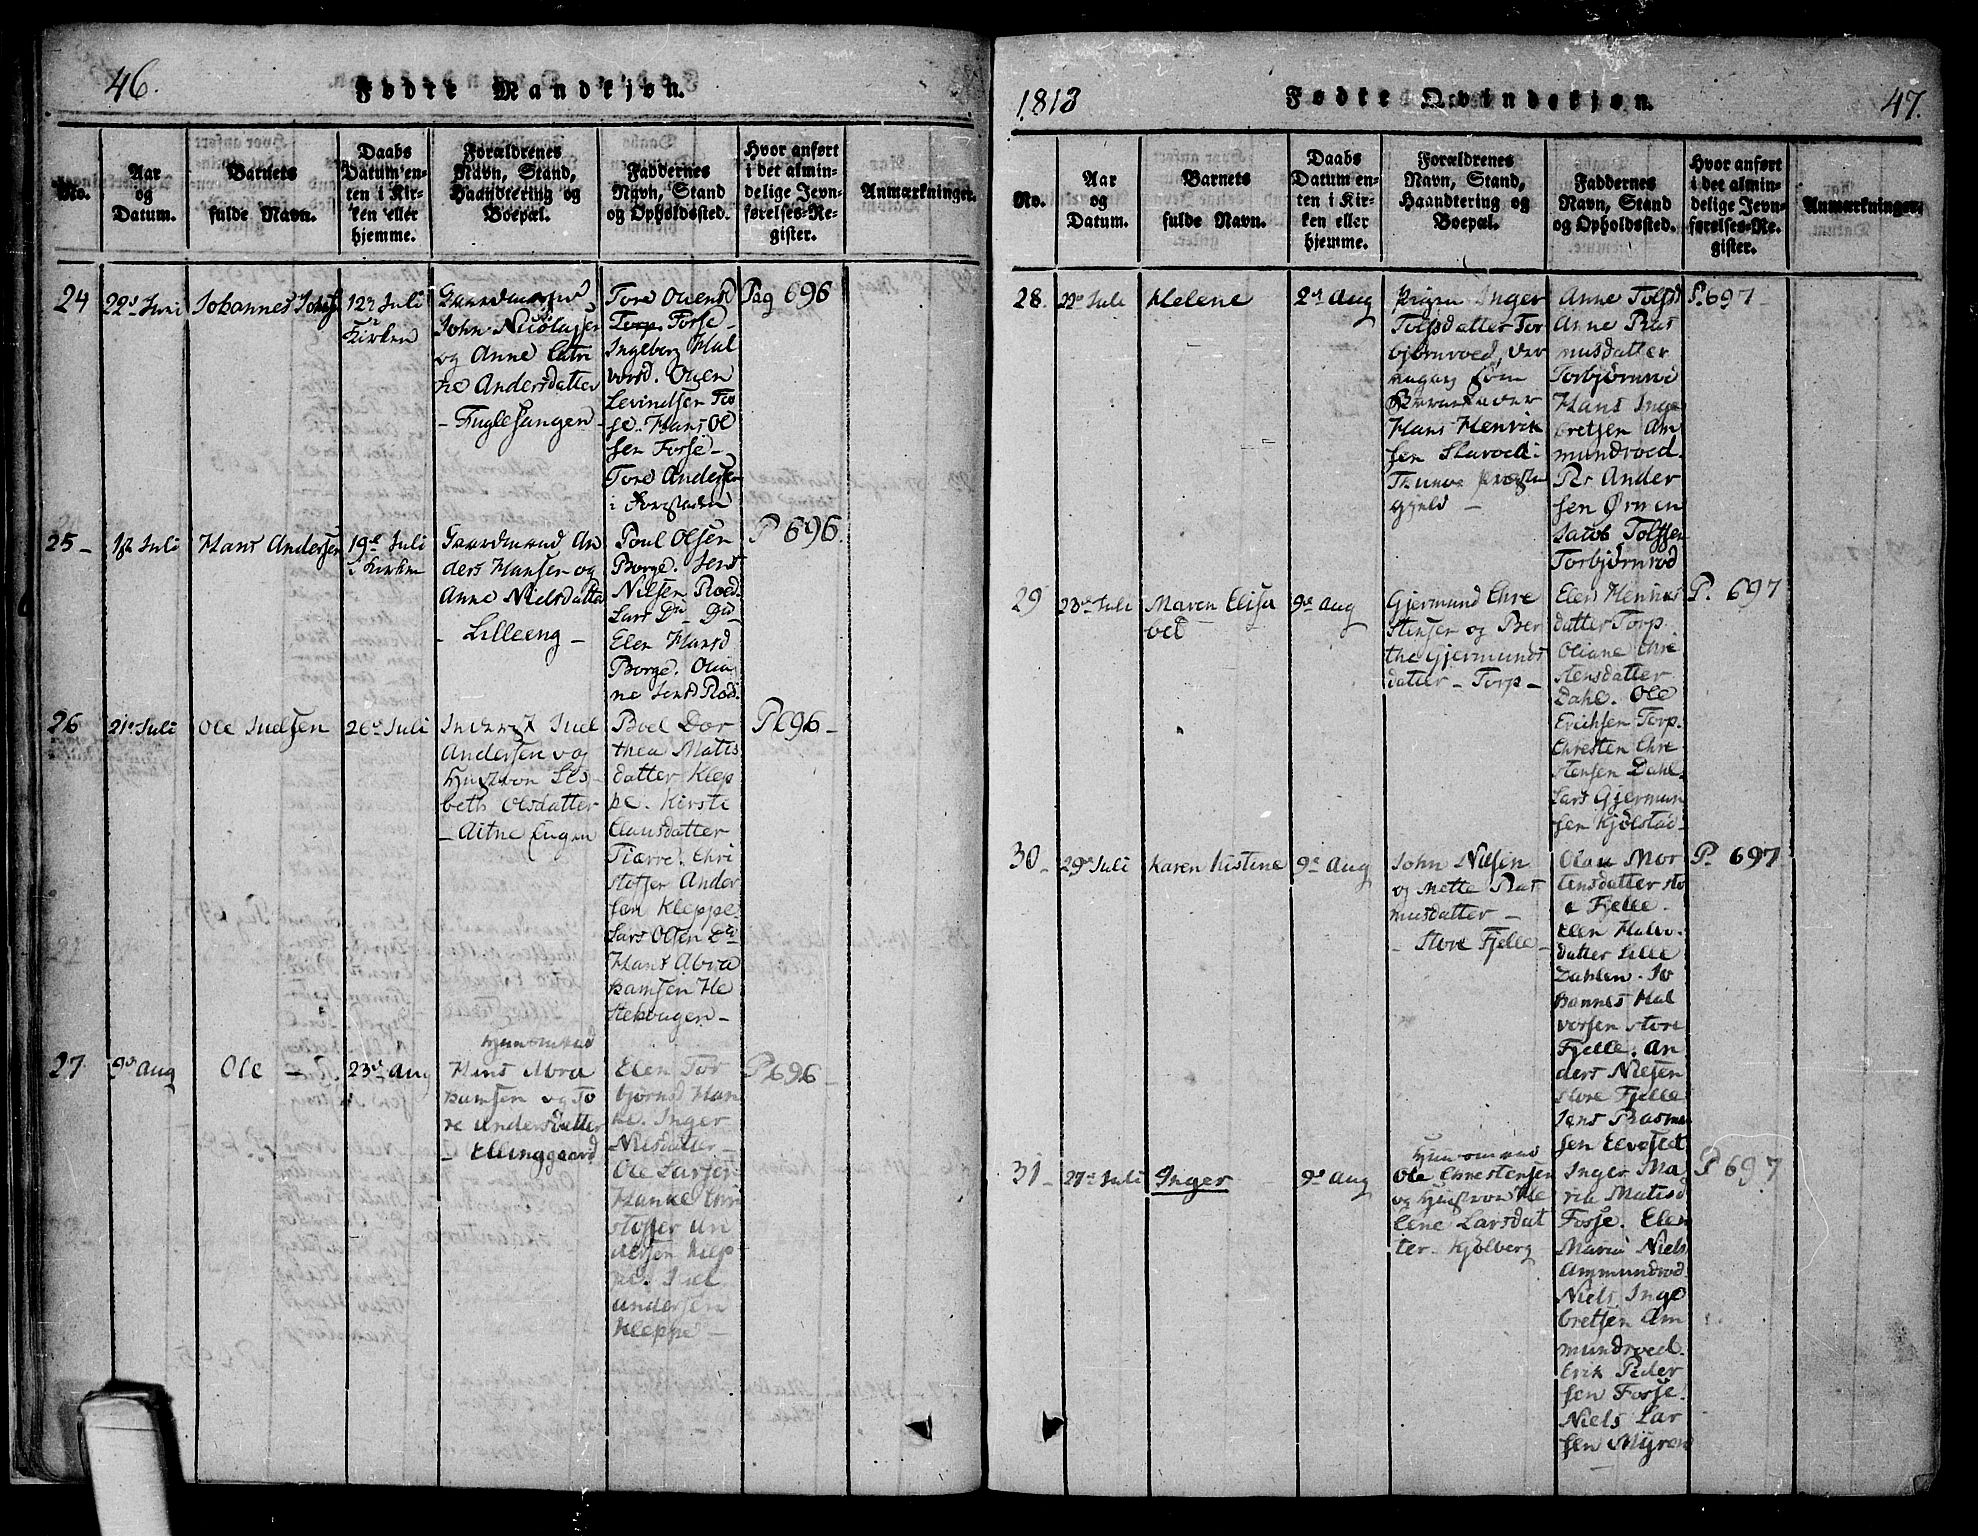 46.
Fødte Mandkjøn.
No.
Aar
og
Datum.
Barnets
fulde Navn.
Daabs
Datum en-
ten i Kir-
ken eller
hjemme.
Forældrenes
Navn, Stand,
Haandtering og
Boepæl.
Faddernes
Navn, Stand
og Opholdssted.
Hvor anført
i det almin-
delige Jevn-
førelses-Re-
gister.
Anmærkninger.
24
22d Juni
Johannes Johs
12te Juli
i Kirken
Gaardmand
John Nicolajsen
og Anne Catri
ne Andersdatter
- Fuglesangen -
Tore Ouensd
Torp. Forse -
Ingeborg Hal
vorsd. Ouen
Levindsen For
se. Hans Ol
sen Forse -
Tore Andersen
i
Pag 696
25 -
1st Juli
Hans Andersen
19de Juli
i Kirken
Gaardmand An
ders Hansen og
Anne Nielsdatter
- Lilleeng -
Poul Olsen
Borge. Jens
Nilsen Roed
Lars Do Do
Elen Hansd
Borge. Olia
ne Jensd Rod.
P 696.
26
21de Juli
Ole Juelsen
26de Juli
Inderst Juel
Andersen og
Hustroe Lis-
beth Olsdatter
- Aitne Engen
Boel Dor
thea Matis
datter Klep
pe. Kirste
Clausdatter
Tiærre. Chri
stoffer Ander
sen Kleppe.
Lars Olsen Do
Hans Abra
hamsen He
stehaugen -
P 696 -
27
9de Aug
Ole -
23de Aug
Huusmand
Hans Abra
hamsen og To
re Andersdatter
- Ellinggaard
Elen Tor
bjørnsd Han
ke. Inger
Nilsdatter
Ole Larsen
Hanke Chri
stoffer An
dersen Klep
pe. Juel
Andersen
Kleppe -
P 696 -
1813
Fødte Qvindekjøn.
47.
No.
Aar
og
Datum.
Barnets
fulde Navn.
Daabs
Datum en-
ten i Kir-
ken eller
hjemme.
Forældrenes
Navn, Stand,
Haandtering og
Boepæl.
Faddernes
Navn, Stand
og Opholdssted.
Hvor anført
i det almin-
delige Jevn-
førelses-Re-
gister.
Anmærkninger.
28.
22de Juli
Helene
2d Aug
Pigen Inger
Tolfsdatter Tor
bjørnroed, der
som
Hans Henrik
sen Skaroed i
Thunøe Præste
gjeld -
Anne Tolfsd
Anne Ras
musdatter
Torbjørnrod
Hans Inge
bretsen Am
mundroed.
Per Ander
sen Ørmen
Jacob Tolfsen
Torbjørnrod
P. 697 -
29
23de Juli
Maren Elisa
bet
9de Aug
Gjermund Chre
stensen og Ber
the Gjermunds
datter - Torp -
Elen Hennings
datter Torp.
Oliane Chri
stensdatter
Dahl. Ole
Erichsen Torp.
Chresten Chre
stensen Dahl.
Lars Gjermun
sen Kjølstad -
P. 697
30 -
29de Juli
Karen Kistine
9de Aug
John Nilsen
og Mette Ras
musdatter -
- Store Fjelle -
Olau Mor
tensdatter sto
e Fjelle -
Elen Halvo
datter Lille
Dahlen. Jo
hannes Hal
vorsen store
Fjelle. An
ders Nilsen
store Fjelle
Jens Rasmu
sen Elvested
P. 697
31 -
27de Juli
Inger
9de Aug
Huusmand
Ole Chrestensen
og Hustroe He
lene Larsdat
ter. Kjølberg
Inger Ma
ria Matisd
Forse. Elen
Maria Niels
Ammundrod.
Niels Inge
bretsen Am
mundroed.
Erik Peder
sen Forse.
Niels Lar
sen Myren
P 697